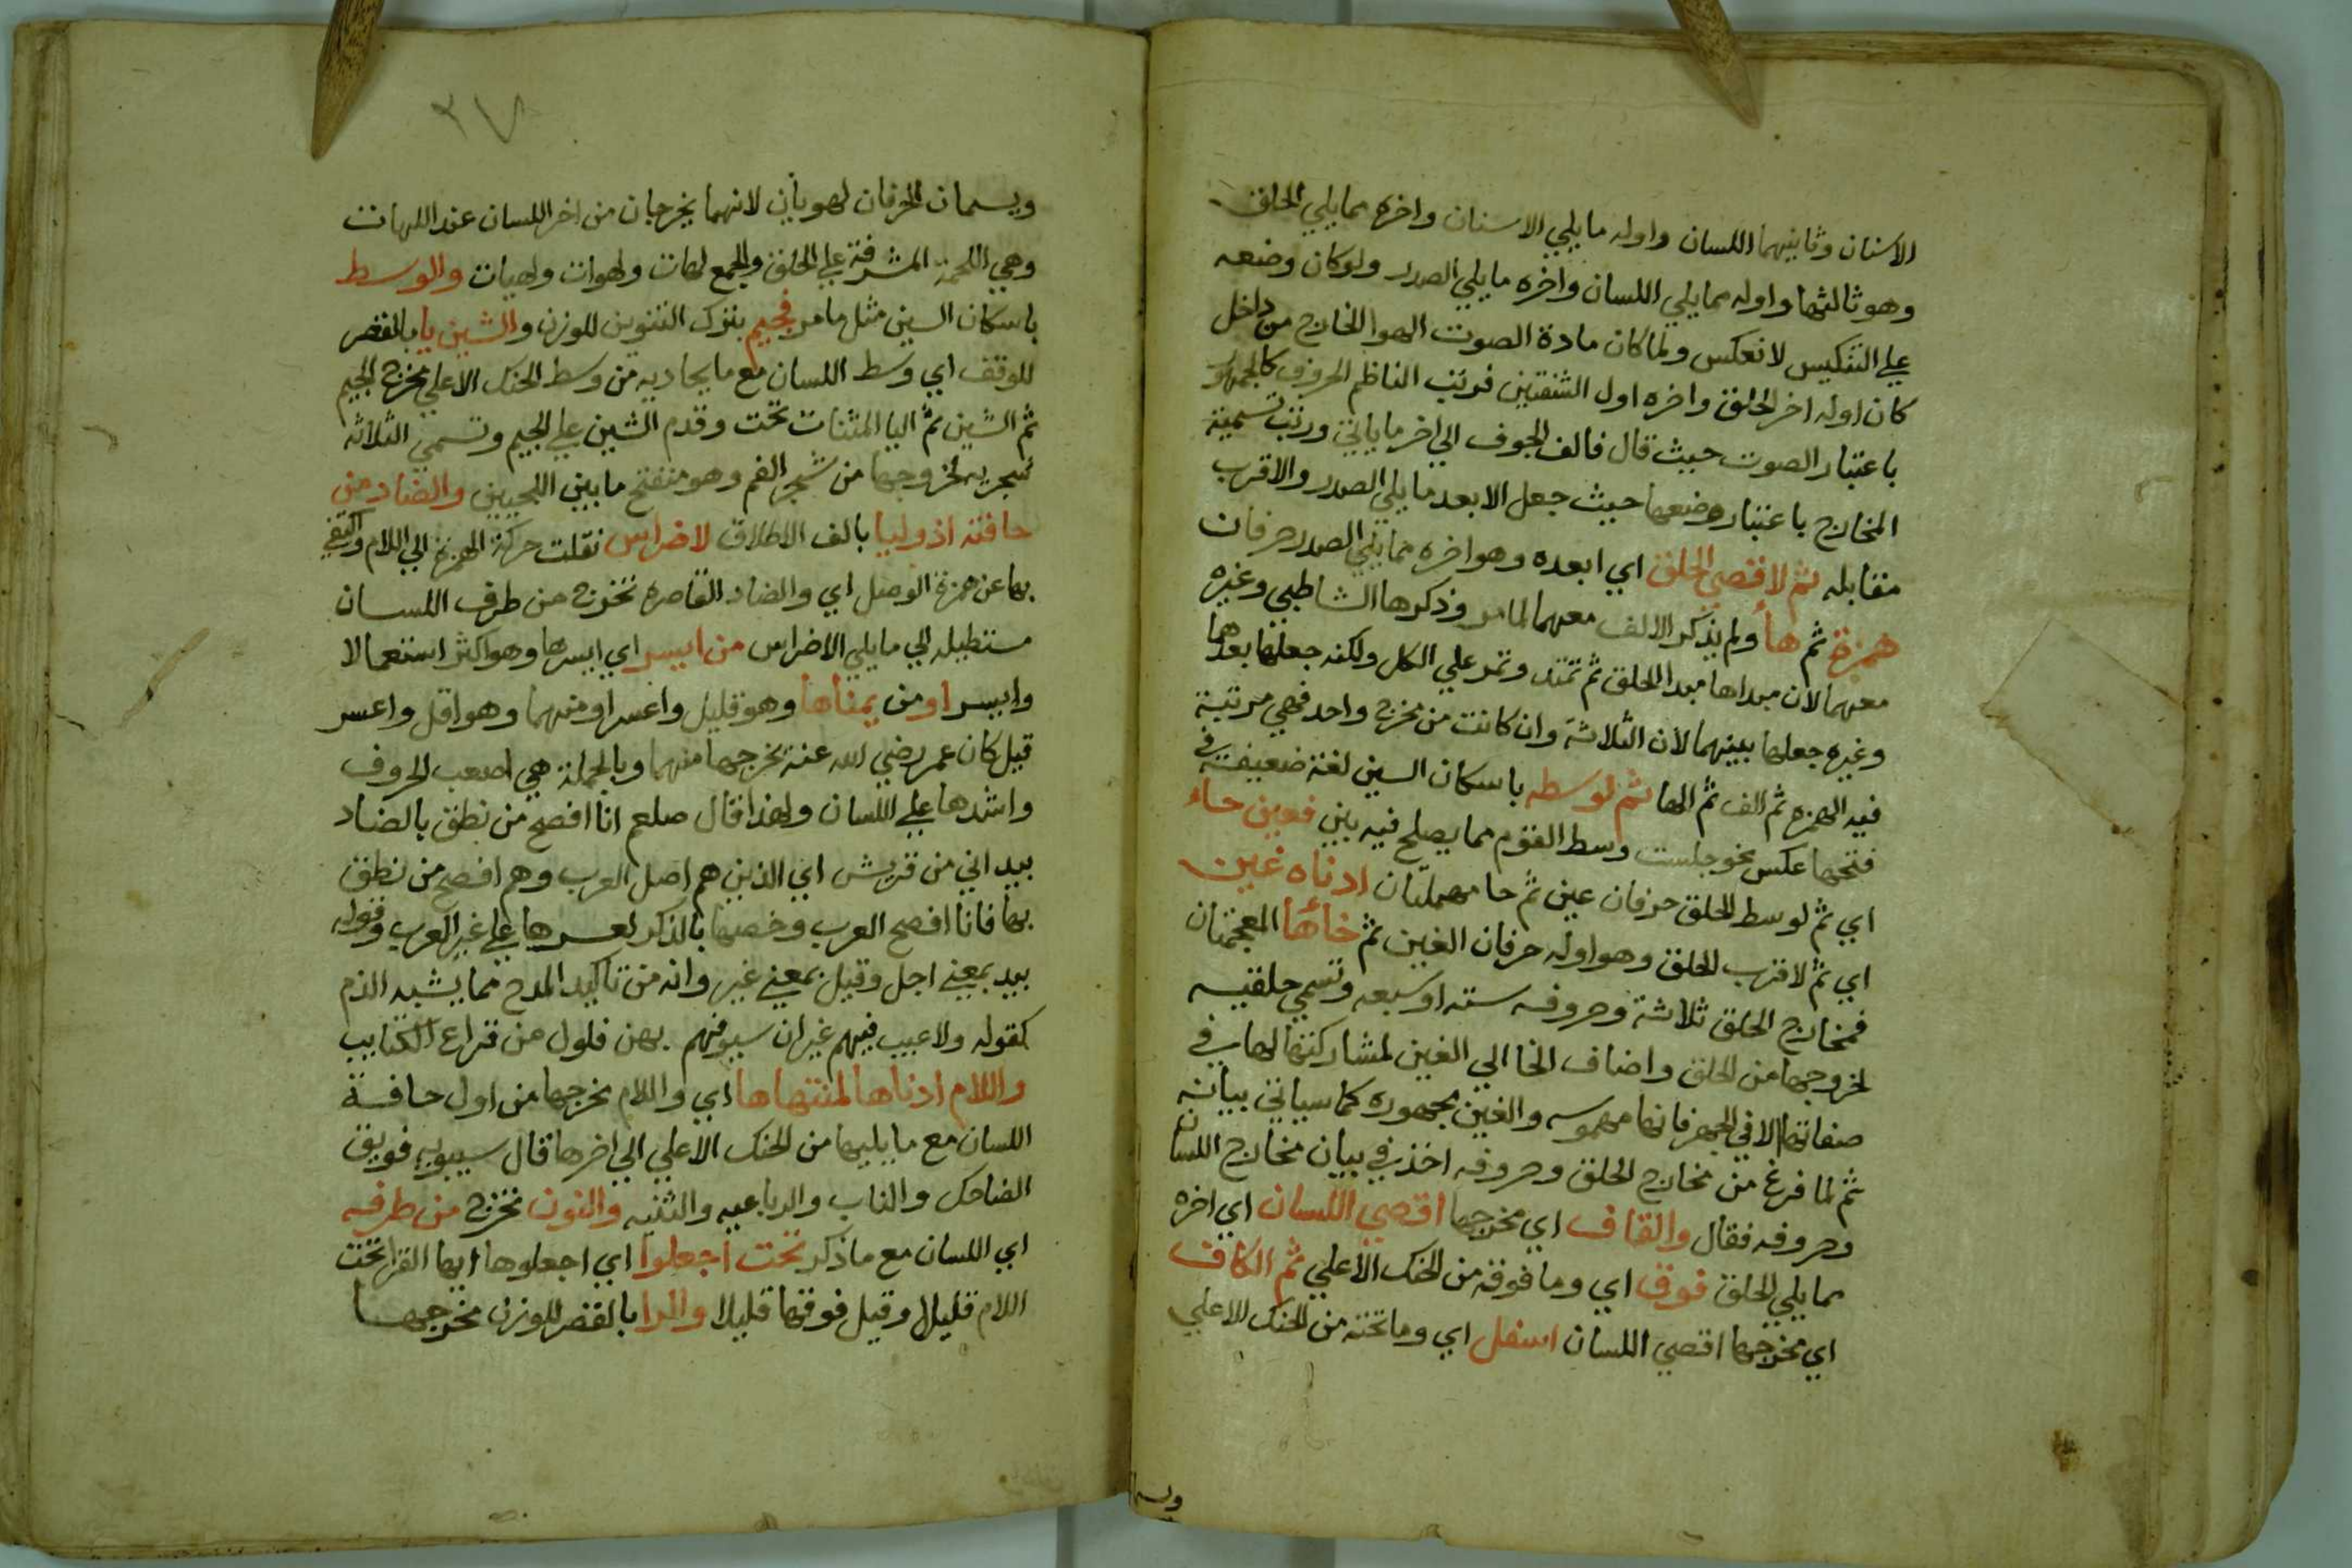 الاسنان وثانيهما اللسان واوله مايلي الاسنان واخره مما يلي الحلق
وهو ثالثها واوله مما يلي اللسان واخره مايلي الصدر ولو كان وضعه
علي التنكيس لانعكس ولما كان مادة الصوت الهوا الخارج من داخل
كان اوله اخر الحلق واخره اول الشفتين فرتب الناظم الحروف كالجمهور
باعتبار الصوت حيث قال فالف الجوف الي اخر ماياتي ورتب تسمية
المخارج باعتبار وضعها حيث جعل الابعد مايلي الصدر والاقرب
مقابله ثم لاقصي الحلق اي ابعده وهو اخره مما يلي الصدر حرفان
همزة ثم هاء ولم يذكر الالف معهما لما مر وذكرها الشاطبي وغيره
معهما لان مبداها مبدا الحلق ثم تمتد وتمر علي الكل ولكنه جعلها بعدهما
وغيره جعلها بينهما لان الثلاثة وان كانت من مخرج واحد فهي مرتبة
فيه الهمزه ثم الف ثم الها ثم لوسطه باسكان السين لغة ضعيفة في
فتحها عكس نحو جلست وسط القوم مما يصلح فيه بين فعين حاء
اي ثم لوسط الحلق حرفان عين ثم حا مهملتان ادناه غين
اي ثم لاقرب الحلق وهو اوله حرفان الغين ثم خاؤها المعجمتان
فمخارج الحلق ثلاثة وحروفه سته او سبعه وتسمي حلقيه
لخروجها من الحلق واضاف الخا الي الغين لمشاركتها لها في
صفاتها الا في الجهر فانها مهموسه والغين مجهوره كما سياتي بيانه
ثم لما فرغ من مخارج الحلق وحروفه اخذ في بيان مخارج اللسان
وحروفه فقال والقاف اي مخرجها اقصي اللسان اي اخره
مما يلي الحلق فوق اي وما فوقه من الحنك الاعلي ثم الكاف
اي مخرجها اقصي اللسان اسفل اي وما تحته من الحنك الاعلي
ويسـ
٢٧
ويسمان الحرفان لهويان لانهما يخرجان من اخر اللسان عند اللهات
وهي اللحمة المشرفة علي الحلق والجمع لهات ولهوات ولهيات والوسط
باسكان السين مثل مامر فجيم بترك التنوين للوزن والشين يا بالقصر
للوقف اي وسط اللسان مع مايحاديه من وسط الحنك الاعلي مخرج الجيم
ثم الشين ثم اليا المثنات تحت وقدم الشين علي الجيم وتسمي الثلاثه
شجريه لخروجها من شجر الفم وهو منفتح مابين اللحيين والضاد من
حافته اذ وليا بالف الاطلاق لاضراس نقلت حركة الهمزة الي اللام واكتفي
بها عن همزة الوصل اي والضاد القاصره تخرج من طرف اللسان
مستطيله الي مايلي الاضراس من ايسر اي ايسرها وهو اكثر استعمالا
وايسر او من يمناها وهو قليل واعسر او منهما وهو اقل واعسر
قيل كان عمر رضي الله عنه يخرجها منهما وبالجملة هي اصعب الحروف
واشدها علي اللسان ولهذا قال صلعم انا افصح من نطق بالضاد
بيد اني من قريش اي الذين هم اصل العرب وهم افصح من نطق
بها فانا افصح العرب وخصها بالذكر لعسرها علي غير العرب وقوله
بيد بمعني اجل وقيل بمعني غير وانه من تاكيد المدح مما يشبه الذم
كقوله ولا عيب فيهم غير ان سيوفهم بهن فلول من قراع الكتايب
واللام ادناها لمنتهاها اي واللام مخرجها من اول حافة
اللسان مع ما يليها من الحنك الاعلي الي اخرها قال سيبويه فويق
الضاحك والناب والرباعيه والثنيه والنون تخرج من طرفه
اي اللسان مع ماذكر تحت اجعلوا اي اجعلوها ايها القرا تحت
اللام قليلا وقيل فوقها قليلا والرا بالقصر للوزن مخرجها